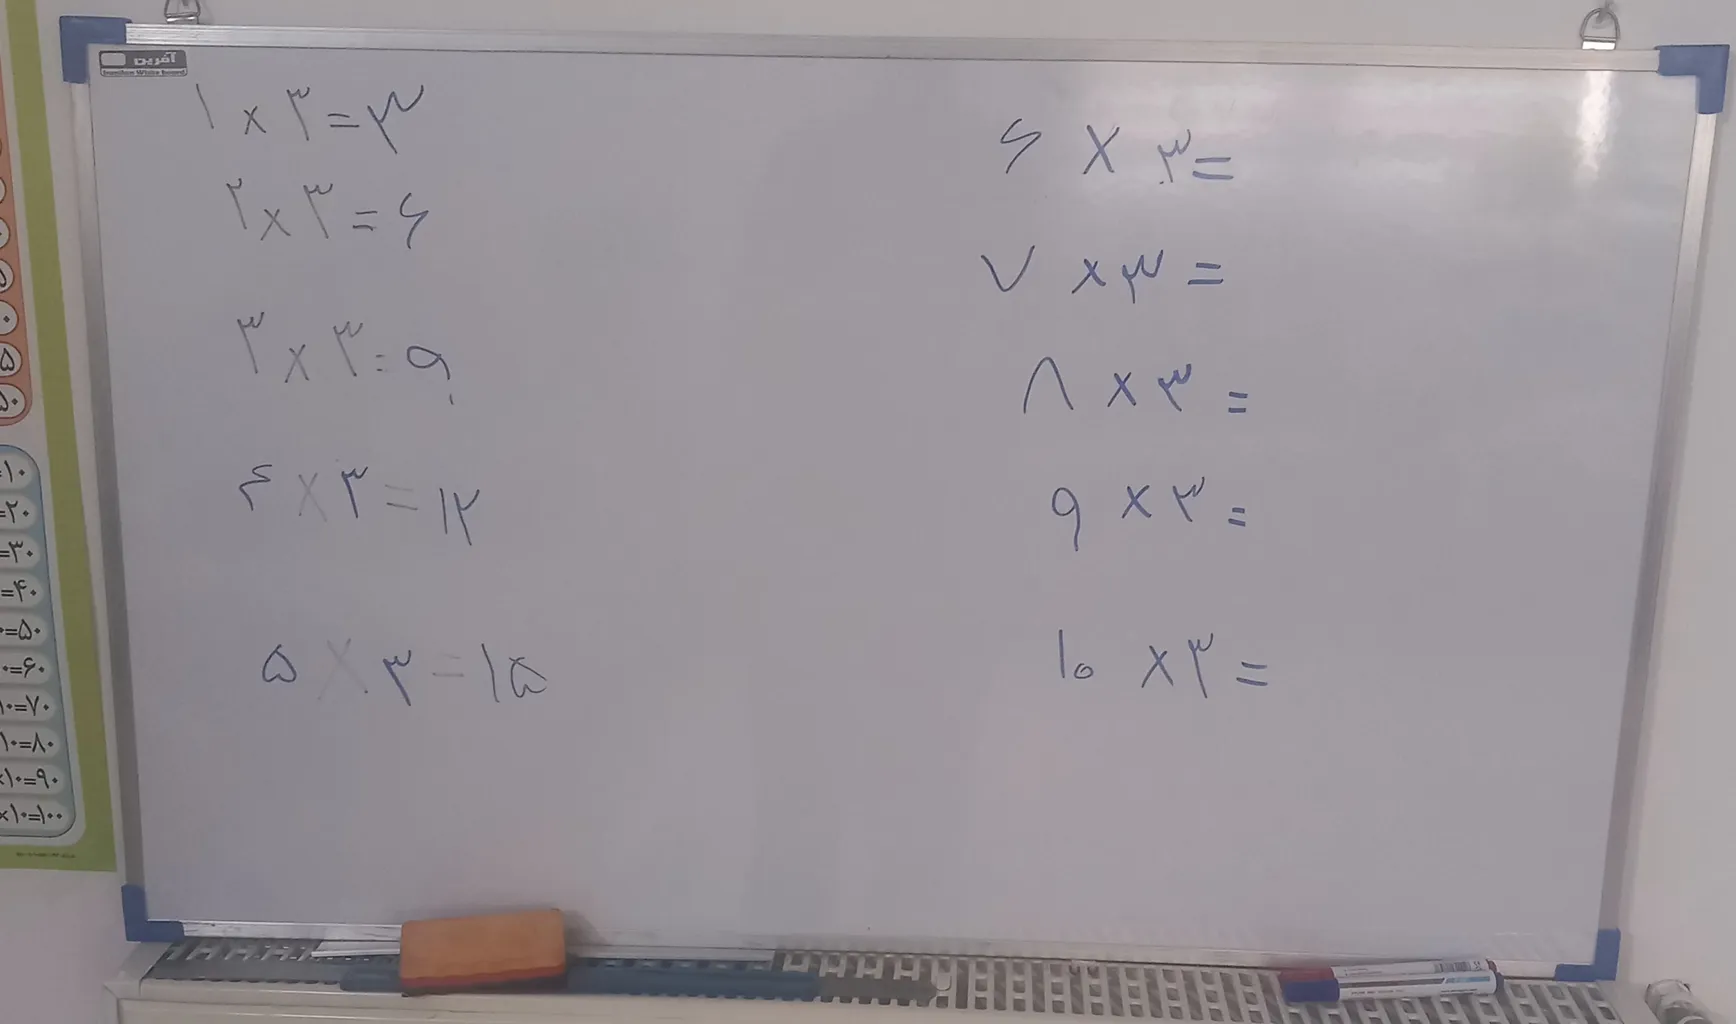 آفرین
۱ × ۳ = ۳
۲ × ۳ = ۶
۳ × ۳ = ۹
۴ × ۳ = ۱۲
۵ × ۳ = ۱۵
۶ × ۳ =
۷ × ۳ =
۸ × ۳ =
۹ × ۳ =
۱۰ × ۳ =
=۱۰
=۲۰
=۳۰
=۴۰
=۵۰
۰=۶۰
۱۰=۷۰
۱۰=۸۰
×۱۰=۹۰
×۱۰=۱۰۰